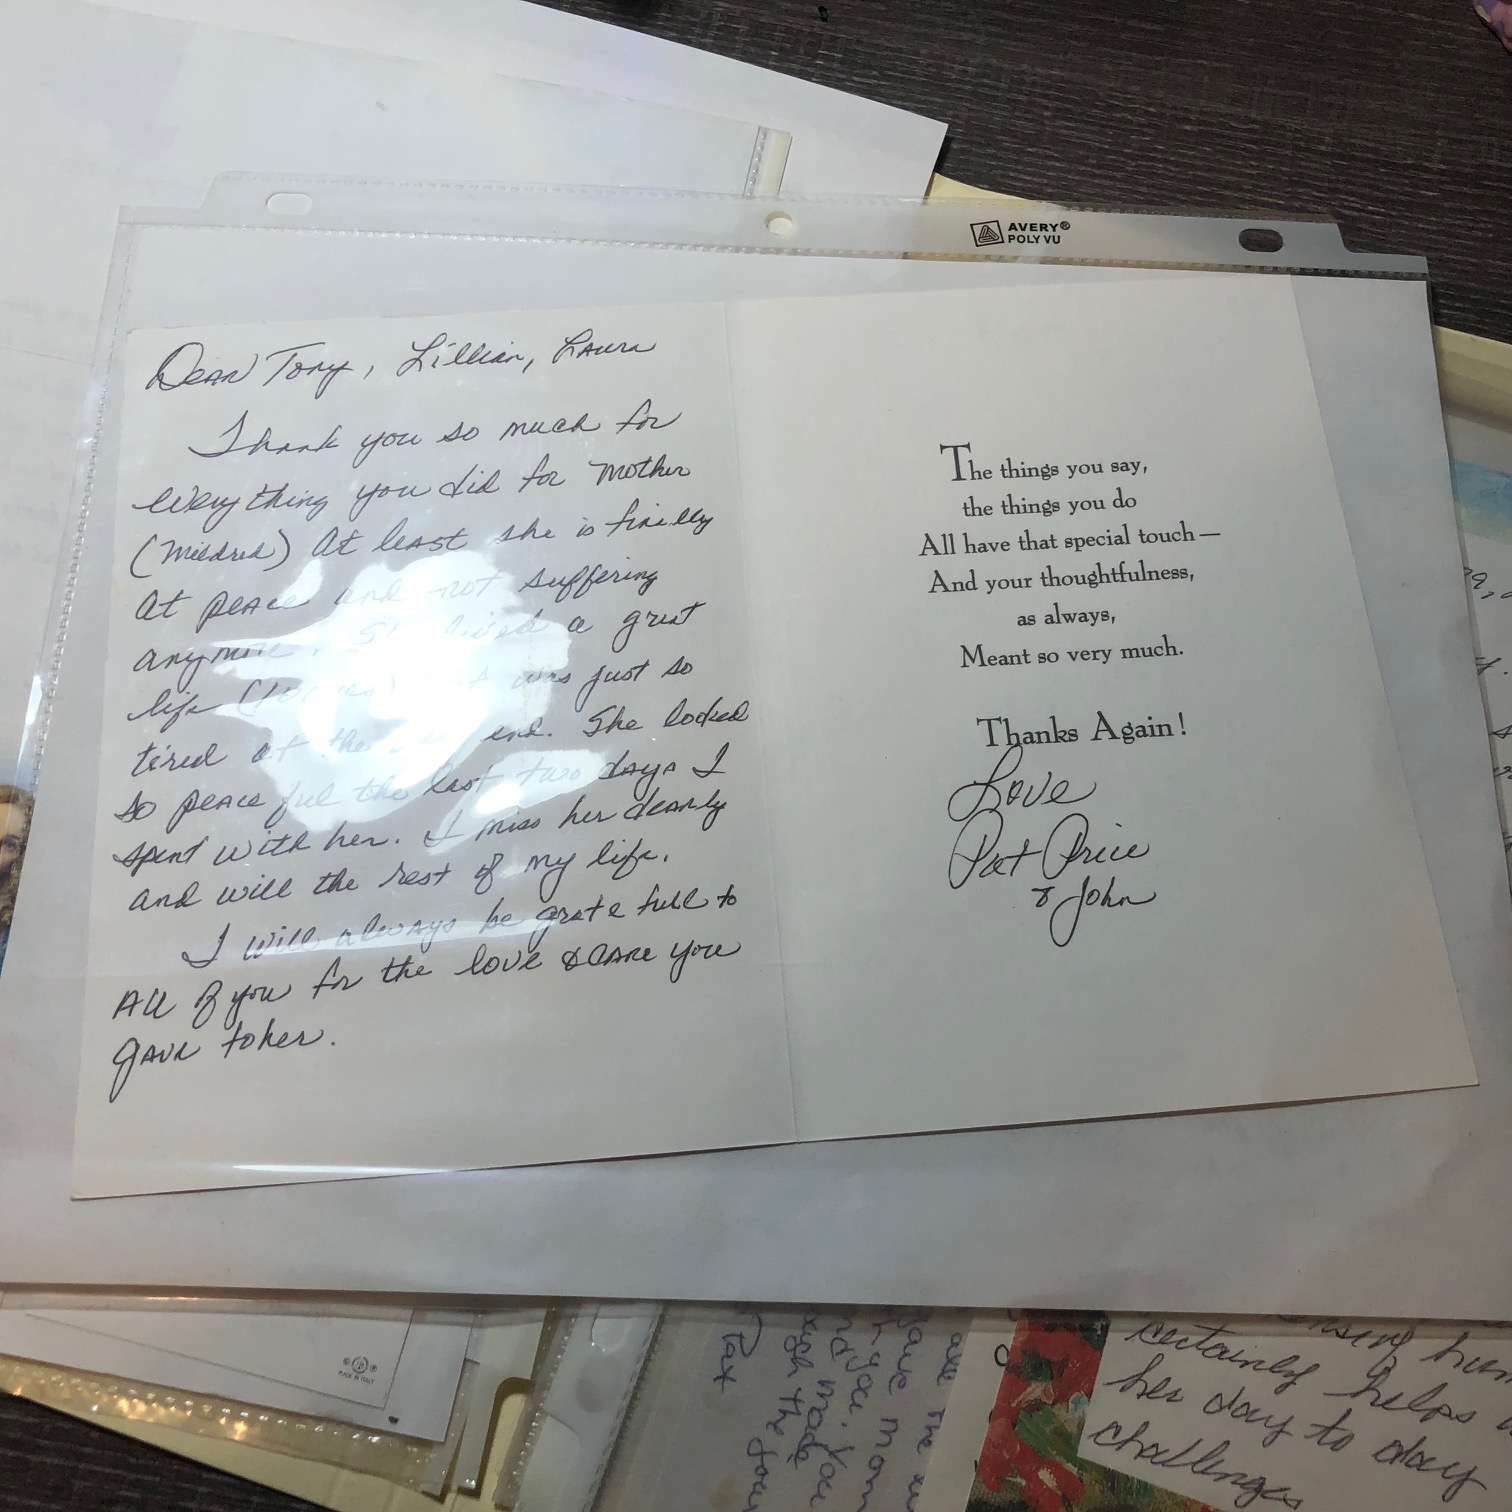 AVERY®
POLY VU
Dear Tony, Lillian, Laura
Thank you so much for
everything you did for Mother
(Mildred) At least she is finally
at peace and not suffering
anymore. She lived a great
life was just so
tired at the end. She looked
so peaceful the last two days I
spent with her. I miss her dearly
and will the rest of my life.
I will always be grateful to
All of you for the love & care you
gave to her.
The things you say,
the things you do
All have that special touch—
And your thoughtfulness,
as always,
Meant so very much.
Thanks Again!
Love
Pat Price
& John
MADE IN ITALY
certainly helps
her day to day
challenges